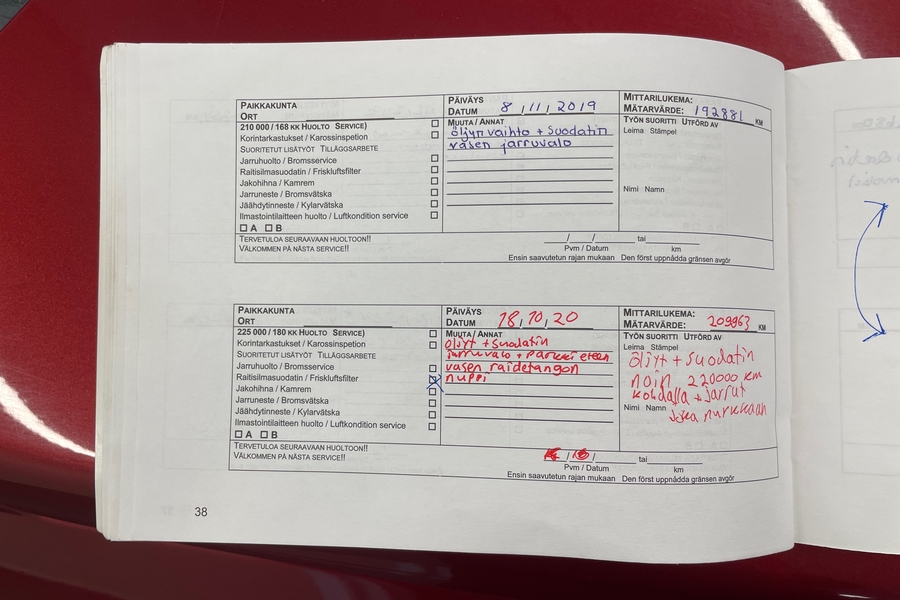 PAIKKAKUNTA
ORT
PÄIVÄYS
DATUM 8 , 11 , 2019
MITTARILUKEMA:
MÄTARVÄRDE: 192881 KM
210 000 / 168 KK HUOLTO SERVICE)
Korintarkastukset / Karossinspetion
SUORITETUT LISÄTYÖT TILLÄGGSARBETE
Jarruhuolto / Bromsservice
Raitisilmasuodatin / Friskluftsfilter
Jakohihna / Kamrem
Jarruneste / Bromsvätska
Jäähdytinneste / Kylarvätska
Ilmastointilaitteen huolto / Luftkondition service
A B
MUUTA / ANNAT
öljyn vaihto + suodatin
vasen jarruvalo
TYÖN SUORITTI UTFÖRD AV
Leima Stämpel
Nimi Namn
TERVETULOA SEURAAVAAN HUOLTOON!!
VÄLKOMMEN PÅ NÄSTA SERVICE!!
/ / tai
Pvm / Datum km
Ensin saavutetun rajan mukaan Den först uppnådda gränsen avgör
PAIKKAKUNTA
ORT
PÄIVÄYS
DATUM 18, 10, 20
MITTARILUKEMA:
MÄTARVÄRDE: 209963 KM
225 000 / 180 KK HUOLTO SERVICE)
Korintarkastukset / Karossinspetion
SUORITETUT LISÄTYÖT TILLÄGGSARBETE
Jarruhuolto / Bromsservice
Raitisilmasuodatin / Friskluftsfilter
Jakohihna / Kamrem
Jarruneste / Bromsvätska
Jäähdytinneste / Kylarvätska
Ilmastointilaitteen huolto / Luftkondition service
A B
MUUTA / ANNAT
öljyt + suodatin
jarruvalo + parkki eteen
vasen raidetangon
nuppi
TYÖN SUORITTI UTFÖRD AV
Leima Stämpel
öljyt + suodatin
noin 220000 km
kohdalla + jarrut
Nimi Namn
joka nurkkaan
TERVETULOA SEURAAVAAN HUOLTOON!!
VÄLKOMMEN PÅ NÄSTA SERVICE!!
/ / tai
Pvm / Datum km
Ensin saavutetun rajan mukaan Den först uppnådda gränsen avgör
38